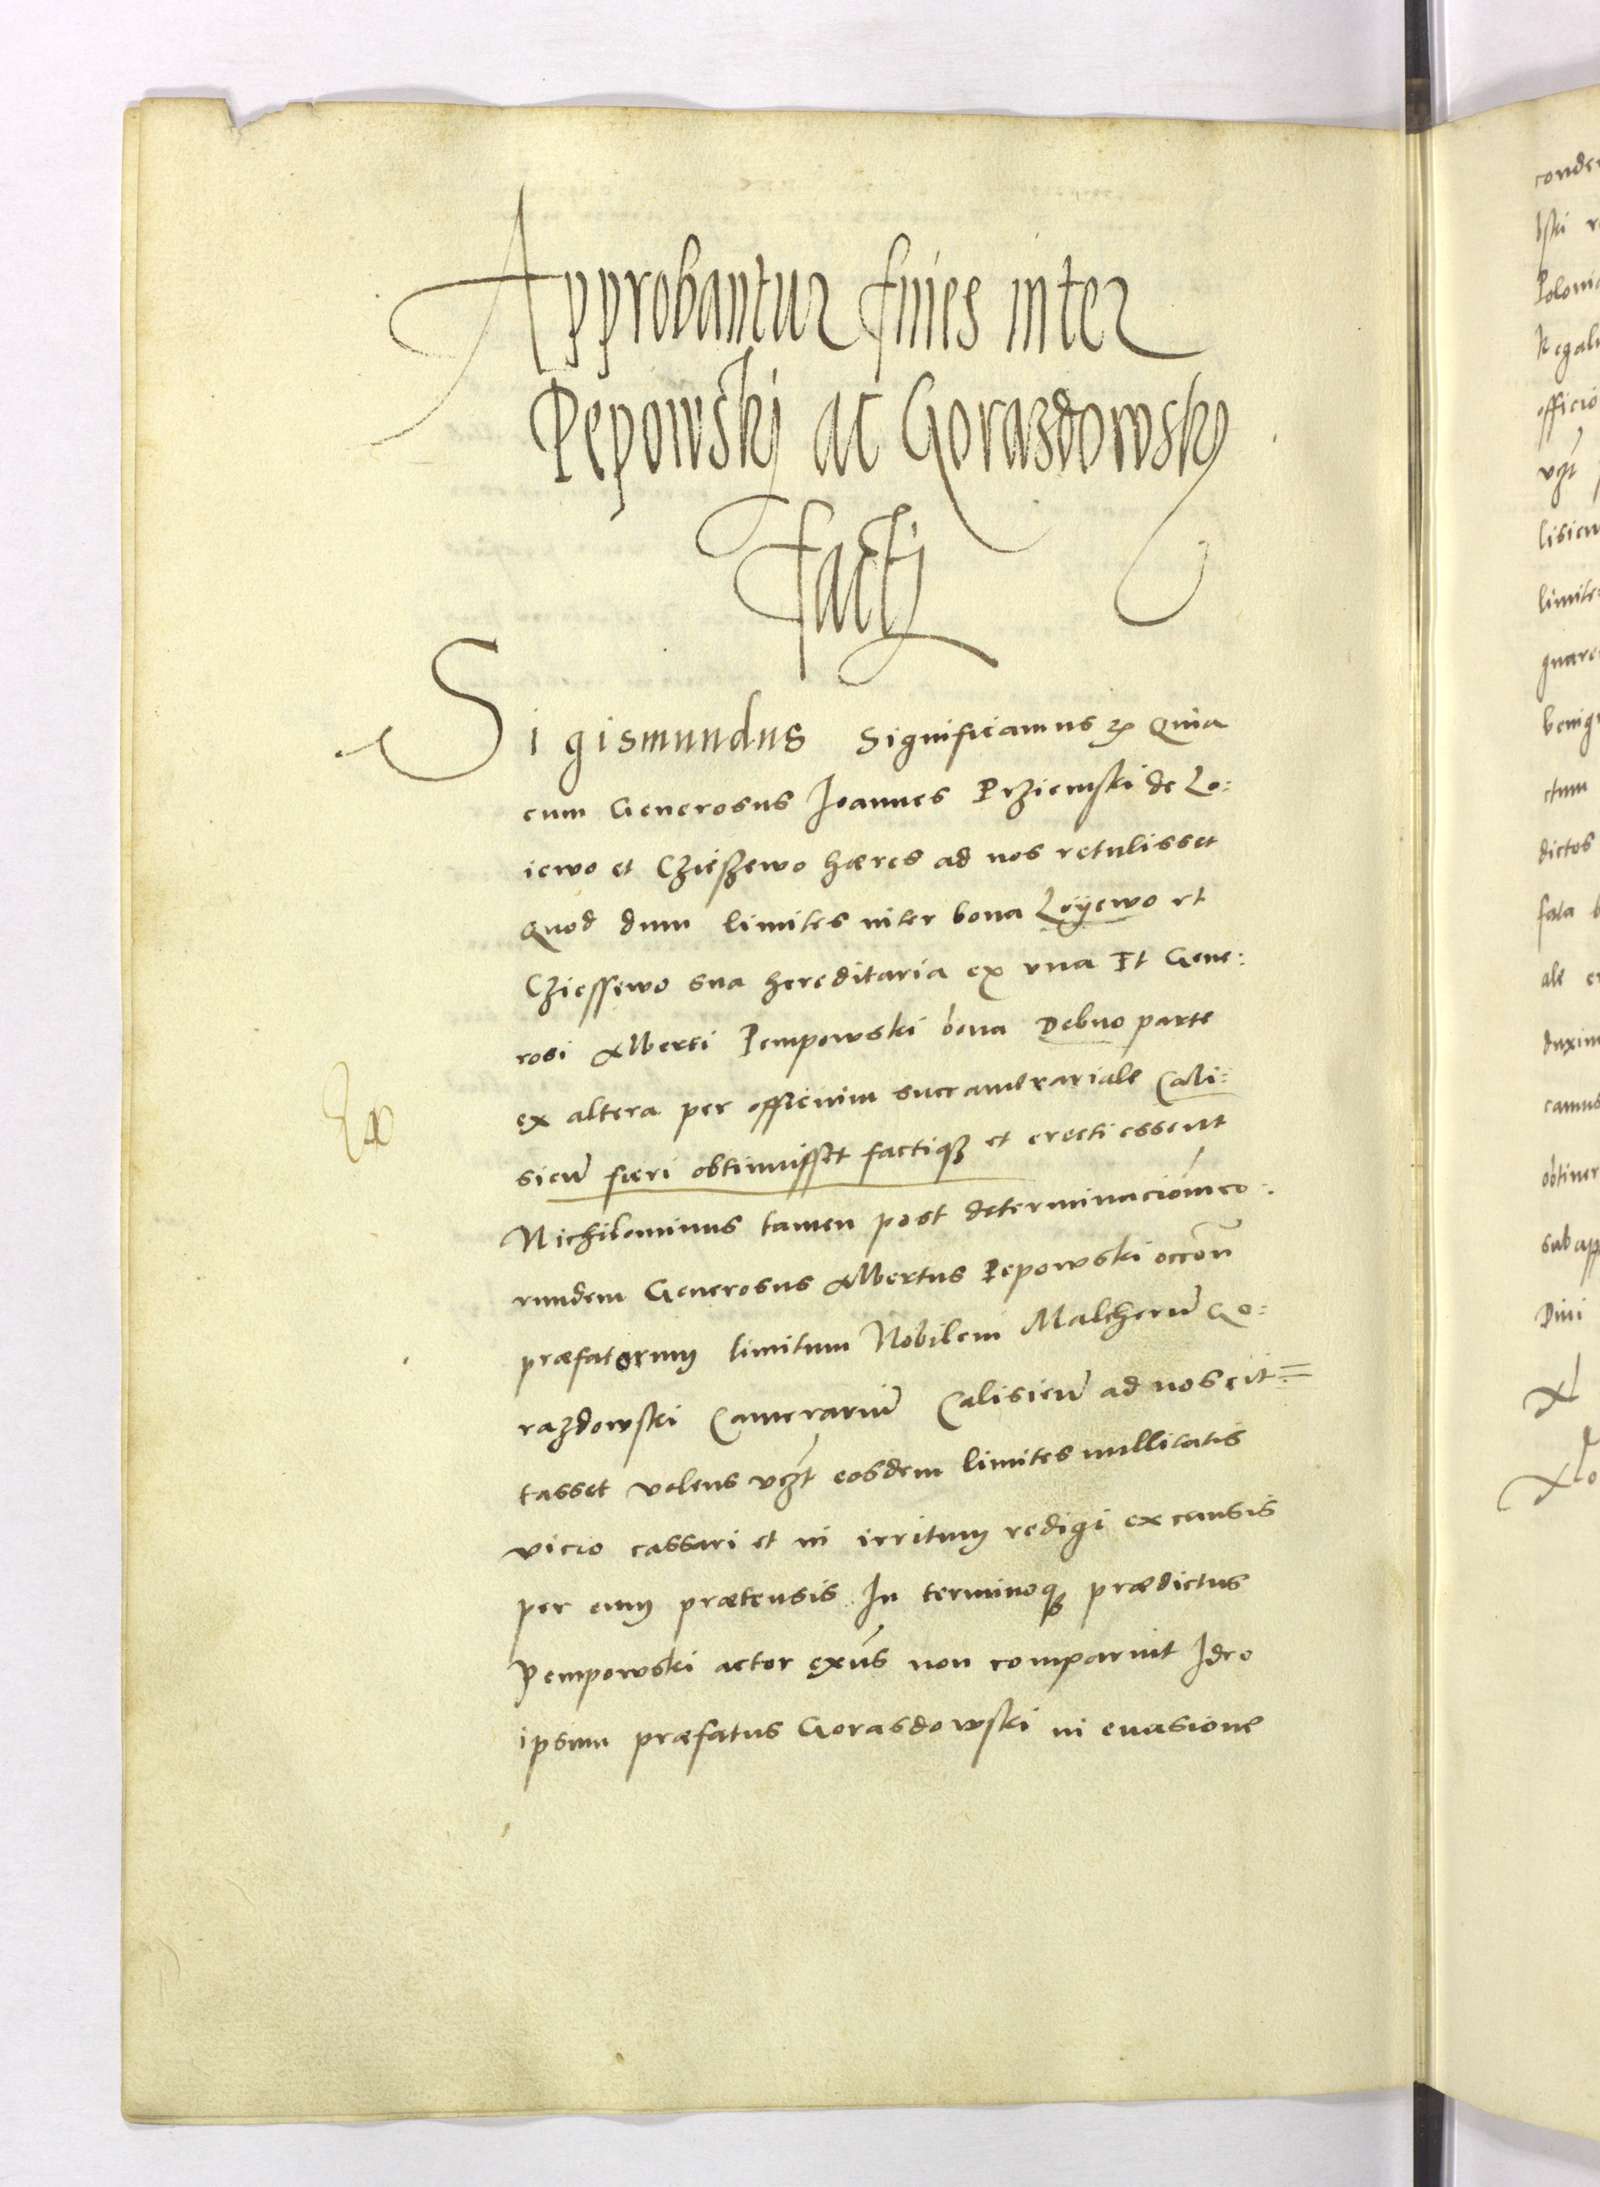 Approbantur fines inter
Pępowskj ac Gorazdowsky
factj
Sigismundus Significamus Quia
cum Generosus Joannes Prziemski de Lo:
iewo et Czieszewo hæres ad nos retulisset
Quod dum limites inter bona Loÿewo et
Cziessewo sua hereditaria ex vna Et Gene:
rosi Alberti Pempowski bona Debno parte
ex altera per officium succamerariale Cali:
sień fieri obtinuisset factiqʒ et erecti essent
Nichilominus tamen post determinacionem eo:
rundem Generosus Albertus Pepowski occoń
præfatorum limitum Nobilem Malcherū Go:
razdowski Camerariū Calisień ad nos cit=
tasset volens vczt eosdem limites nullitatis
vicio cassari et in irritum redigi ex causis
per eum prætensis In terminoqʒ prædictus
Pempowski actor exńs non comparuit Ideo
ipsum præfatus Gorasdowski in euasione
conder
lski
Polonia
Regal
officio
vczt
lisień
limite
gnare
benig
ctum
dictos
fata
ale
duxim
camus
obtiner
sub app
Diui